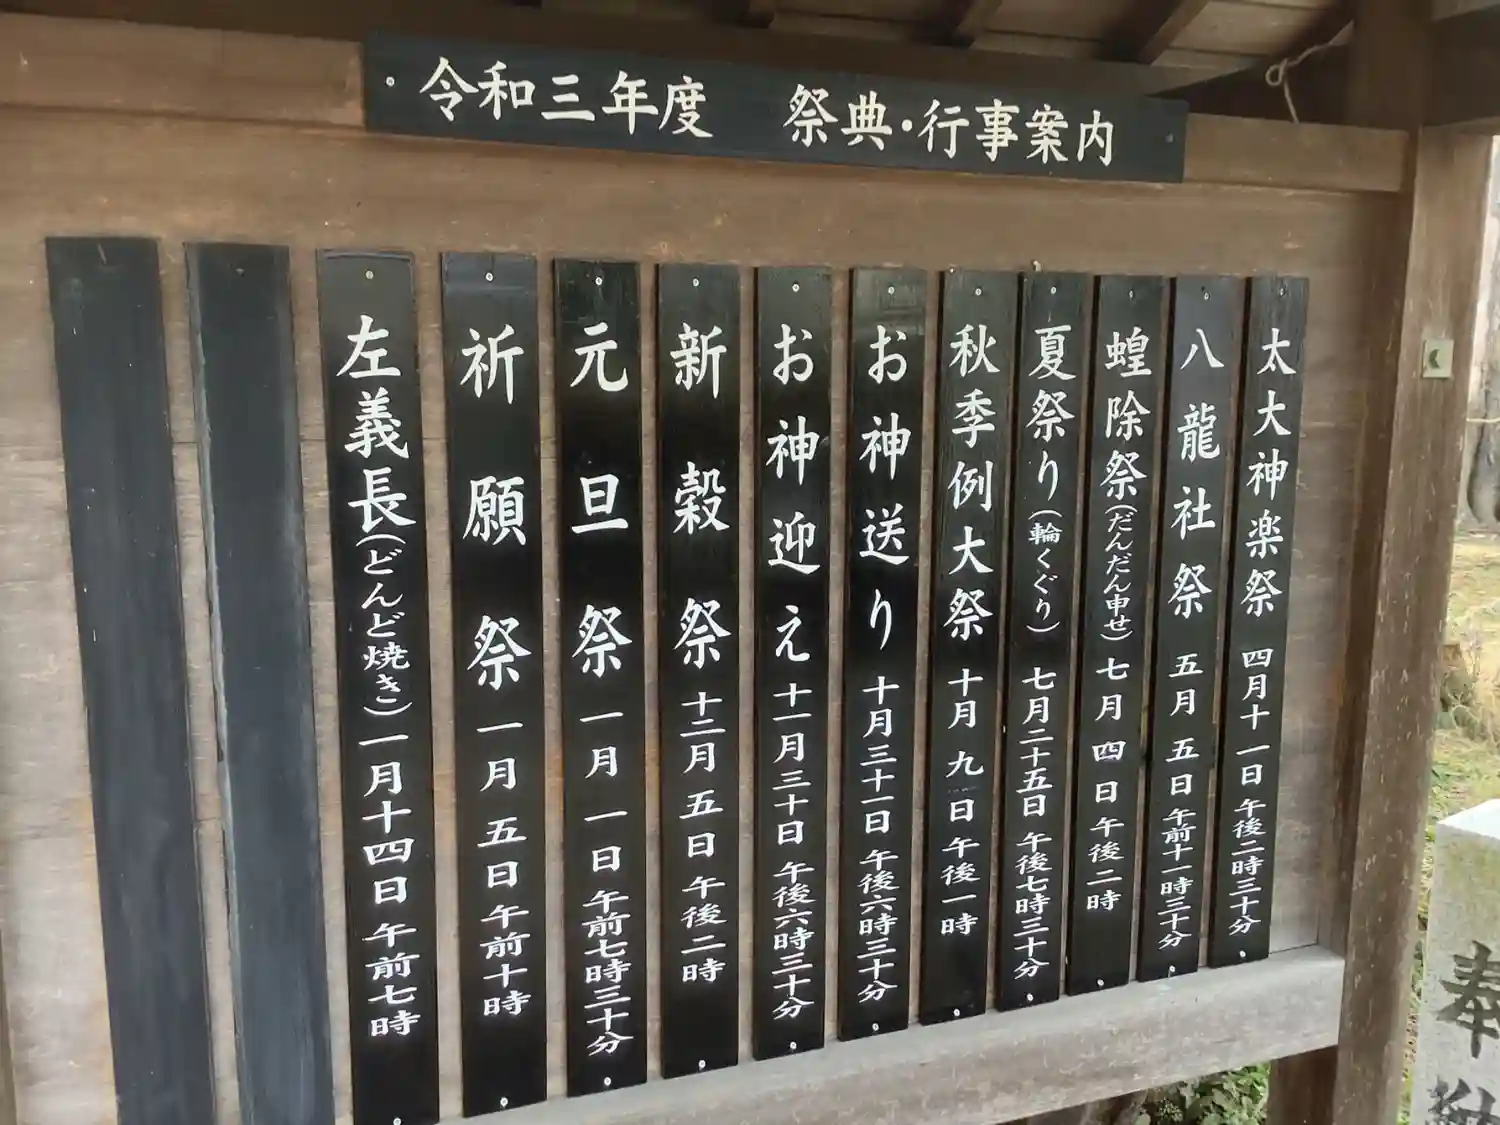 令和三年度 祭典・行事案内
太大神楽祭 四月十一日 午後二時三十分
八龍社祭 五月五日 午前十一時三十分
蝗除祭(だんだん申せ) 七月四日 午後二時
夏祭り(輪くぐり) 七月二十五日 午後七時三十分
秋季例大祭 十月九日 午後一時
お神送り 十月三十一日 午後六時三十分
お神迎え 十一月三十日 午後六時三十分
新穀祭 十二月五日 午後二時
元旦祭 一月一日 午前七時三十分
祈願祭 一月五日 午前十時
左義長(どんど焼き) 一月十四日 午前七時
奉